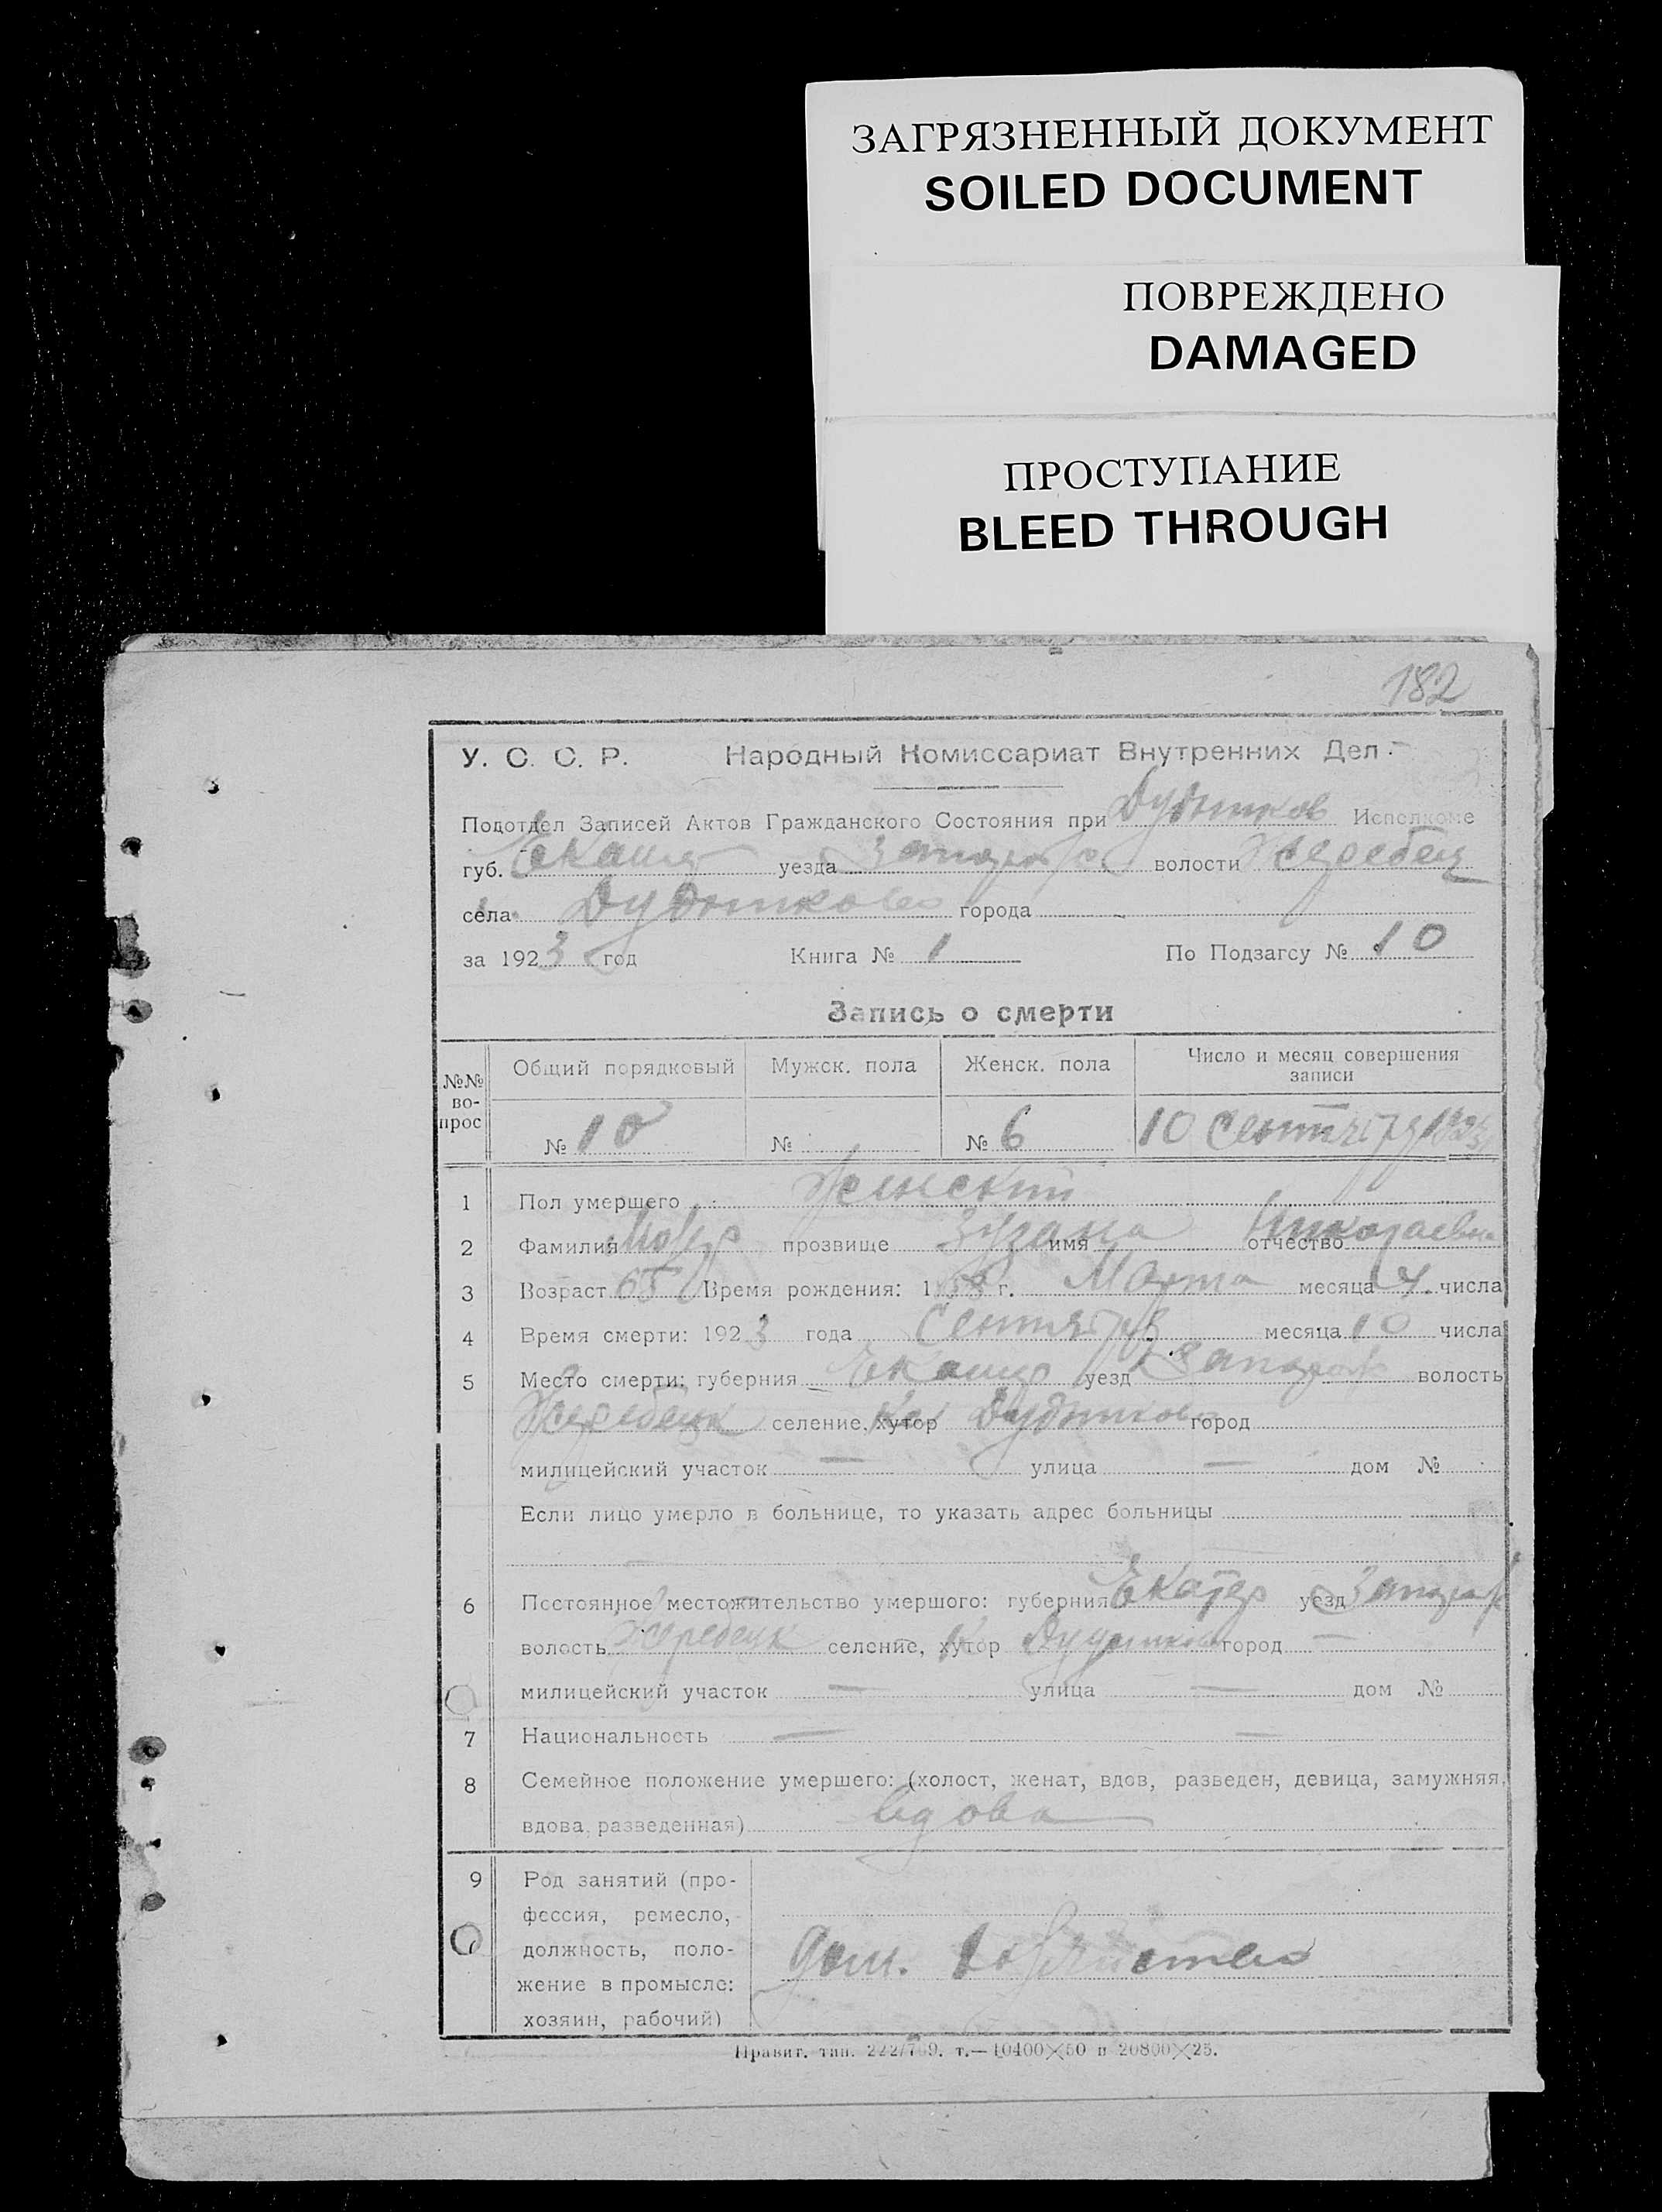 ЗАГРЯЗНЕННЫЙ ДОКУМЕНТ
SOILED DOCUMENT
ПОВРЕЖДЕНО
DAMAGED
ПРОСТУПАНИЕ
BLEED THROUGH
182
У. С. С. Р. Народный Комиссариат Внутренних Дел
Подотдел Записей Актов Гражданского Состояния при Исполкоме
губ. уезда волости Жеребец
села города
за 1923 год Книга № 1 По Подзагсу № 10
Запись о смерти
№№ вопрос Общий порядковый Мужск. пола Женск. пола Число и месяц совершения записи
№ 10 № № 6 10 Сентября 1923
1 Пол умершего Женский
2 Фамилия прозвище Зузана имя отчество Николаевна
3 Возраст 65 Время рождения: 1858 г. Марта месяца 4. числа
4 Время смерти: 1923 года Сентября месяца 10 числа
5 Место смерти: губерния уезд Запорож волость
Жеребецк селение, хутор город
милицейский участок — улица — дом №
Если лицо умерло в больнице, то указать адрес больницы
6 Постоянное местожительство умершого: губерния Екатер уезд Запорож
волость Жеребецк селение, хутор город —
милицейский участок — улица — дом №
7 Национальность — —
8 Семейное положение умершего: (холост, женат, вдов, разведен, девица, замужняя,
вдова, разведенная) вдова
9 Род занятий (про-
фессия, ремесло,
должность, поло-
жение в промысле:
хозяин, рабочий)
дом. хозяйство
Правит. тип. 222/789. т.—10400×50 и 20800×25.